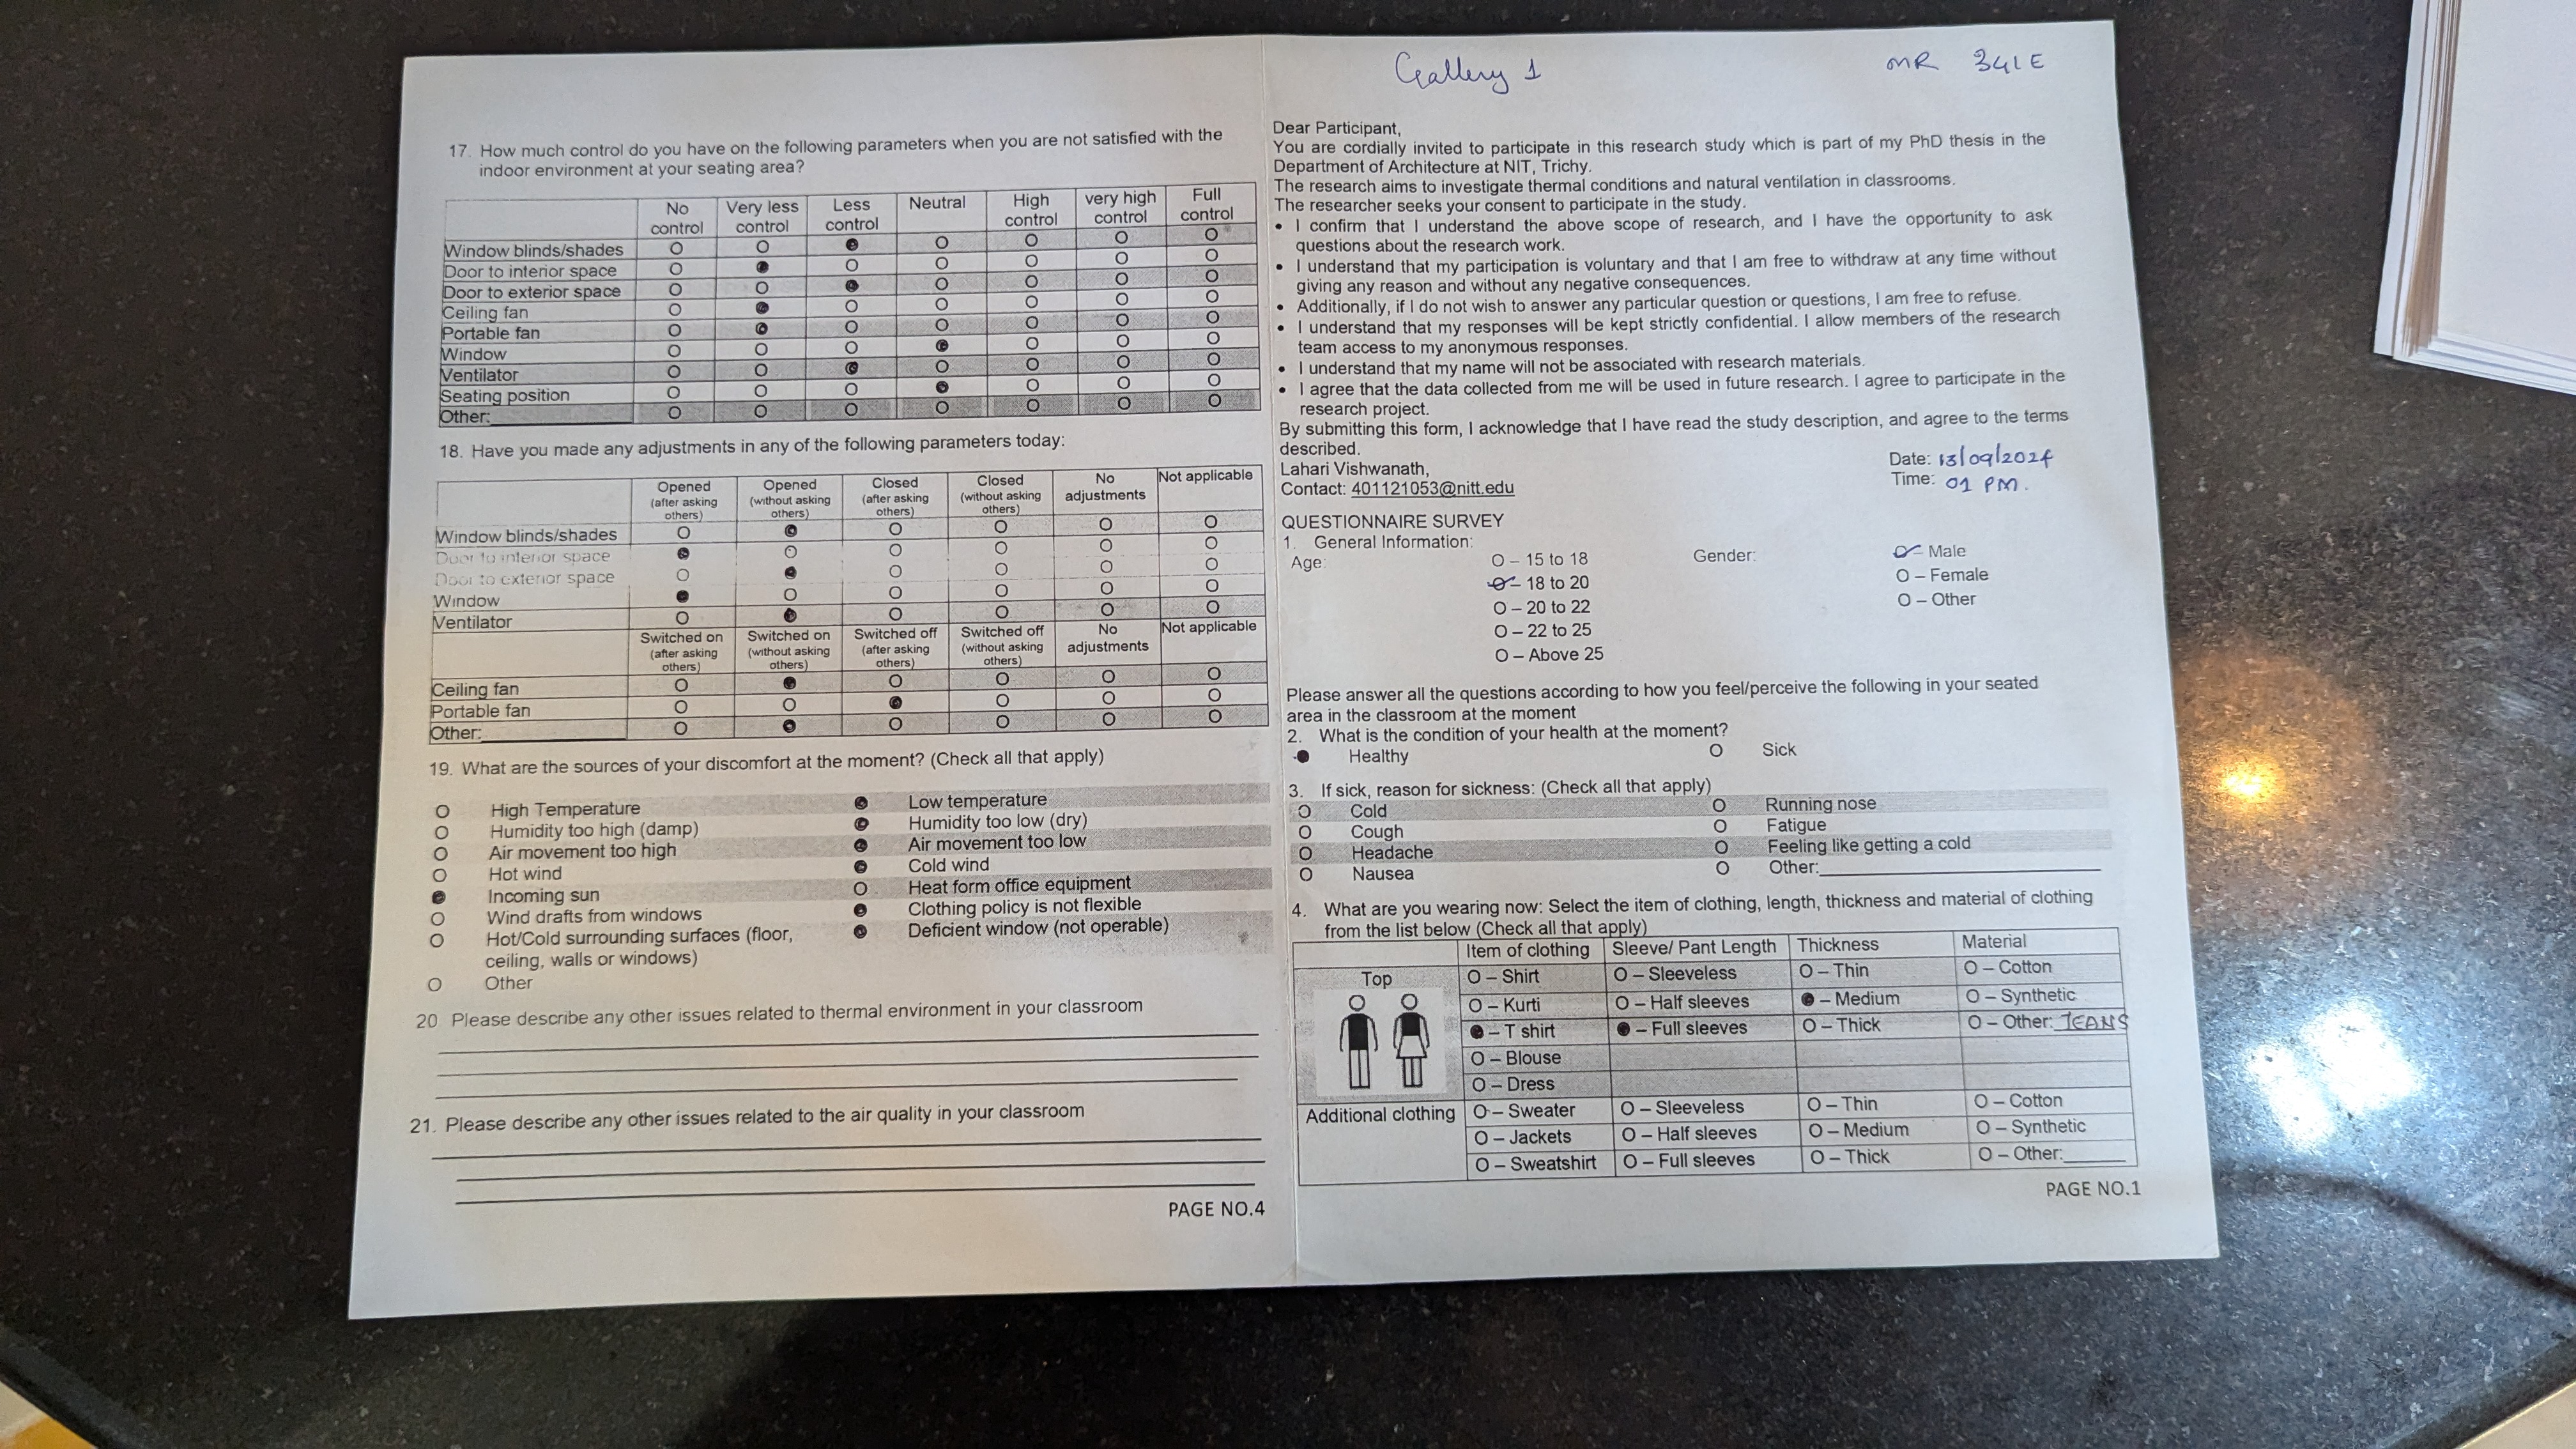 17. How much control do you have on the following parameters when you are not satisfied with the
indoor environment at your seating area?
No control Very less control Less control Neutral High control very high control Full control
Window blinds/shades O O ● O O O O
Door to interior space O ● O O O O O
Door to exterior space O O ● O O O O
Ceiling fan O ● O O O O O
Portable fan O ● O O O O O
Window O O O ● O O O
Ventilator O O ● O O O O
Seating position O O O ● O O O
Other:________ O O O O O O O
18. Have you made any adjustments in any of the following parameters today:
Opened (after asking others) Opened (without asking others) Closed (after asking others) Closed (without asking others) No adjustments Not applicable
Window blinds/shades O ● O O O O
Door to interior space ● O O O O O
Door to exterior space O ● O O O O
Window ● O O O O O
Ventilator O ● O O O O
Switched on (after asking others) Switched on (without asking others) Switched off (after asking others) Switched off (without asking others) No adjustments Not applicable
Ceiling fan O ● O O O O
Portable fan O O ● O O O
Other:________ O ● O O O O
19. What are the sources of your discomfort at the moment? (Check all that apply)
O High Temperature ● Low temperature
O Humidity too high (damp) ● Humidity too low (dry)
O Air movement too high ● Air movement too low
O Hot wind ● Cold wind
● Incoming sun O Heat form office equipment
O Wind drafts from windows ● Clothing policy is not flexible
O Hot/Cold surrounding surfaces (floor, ● Deficient window (not operable)
ceiling, walls or windows)
O Other
20 Please describe any other issues related to thermal environment in your classroom
21. Please describe any other issues related to the air quality in your classroom
PAGE NO.4
Gallery 1 MR 341E
Dear Participant,
You are cordially invited to participate in this research study which is part of my PhD thesis in the
Department of Architecture at NIT, Trichy.
The research aims to investigate thermal conditions and natural ventilation in classrooms.
The researcher seeks your consent to participate in the study.
• I confirm that I understand the above scope of research, and I have the opportunity to ask
questions about the research work.
• I understand that my participation is voluntary and that I am free to withdraw at any time without
giving any reason and without any negative consequences.
• Additionally, if I do not wish to answer any particular question or questions, I am free to refuse.
• I understand that my responses will be kept strictly confidential. I allow members of the research
team access to my anonymous responses.
• I understand that my name will not be associated with research materials.
• I agree that the data collected from me will be used in future research. I agree to participate in the
research project.
By submitting this form, I acknowledge that I have read the study description, and agree to the terms
described.
Lahari Vishwanath, Date: 13/09/2024
Contact: 401121053@nitt.edu Time: 01 PM.
QUESTIONNAIRE SURVEY
1. General Information:
Age: O – 15 to 18 Gender: O – Male
O – 18 to 20 O – Female
O – 20 to 22 O – Other
O – 22 to 25
O – Above 25
Please answer all the questions according to how you feel/perceive the following in your seated
area in the classroom at the moment
2. What is the condition of your health at the moment?
● Healthy O Sick
3. If sick, reason for sickness: (Check all that apply)
O Cold O Running nose
O Cough O Fatigue
O Headache O Feeling like getting a cold
O Nausea O Other:________
4. What are you wearing now: Select the item of clothing, length, thickness and material of clothing
from the list below (Check all that apply)
Item of clothing Sleeve/ Pant Length Thickness Material
Top O – Shirt O – Sleeveless O – Thin O – Cotton
O – Kurti O – Half sleeves ● – Medium O – Synthetic
● – T shirt ● – Full sleeves O – Thick O – Other: JEANS
O – Blouse
O – Dress
Additional clothing O – Sweater O – Sleeveless O – Thin O – Cotton
O – Jackets O – Half sleeves O – Medium O – Synthetic
O – Sweatshirt O – Full sleeves O – Thick O – Other:______
PAGE NO.1